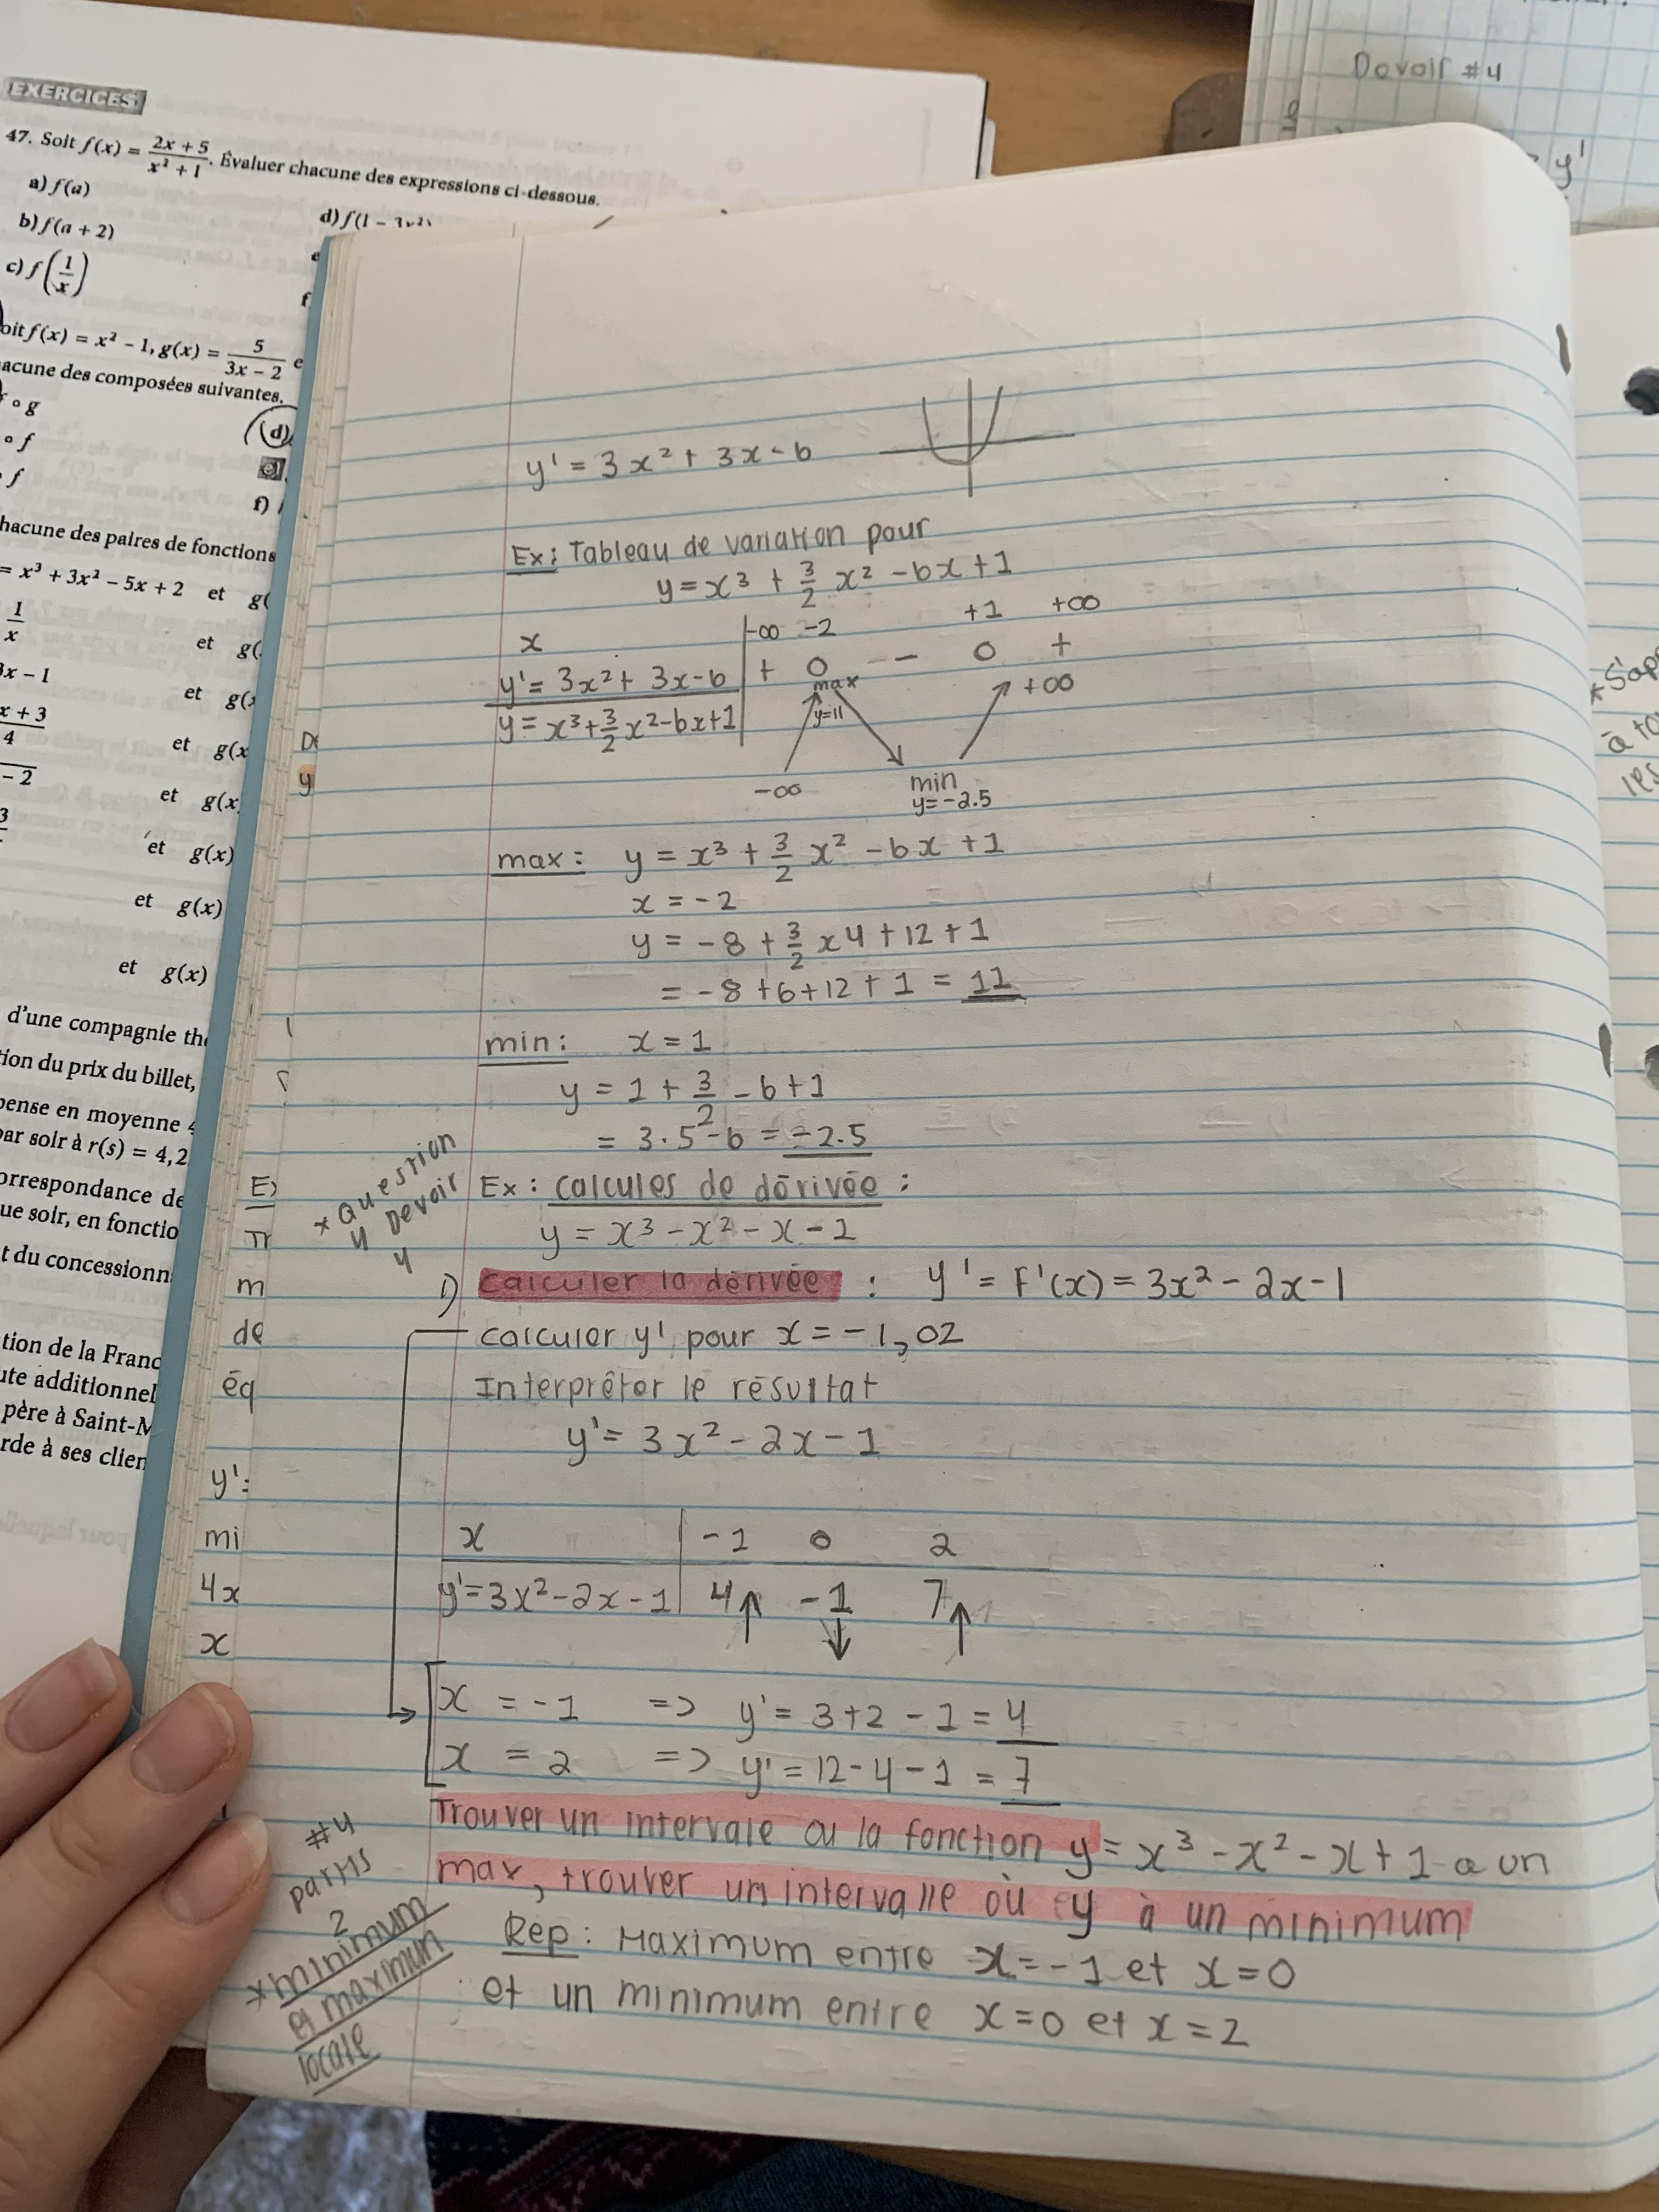 EXERCICES
47. Soit f(x) = (2x + 5)/(x² + 1). Évaluer chacune des expressions ci-dessous.
a) f(a)
b) f(a + 2)
c) f(1/x)
d) f(1 -
oit f(x) = x² - 1, g(x) = 5/(3x - 2) e
acune des composées suivantes.
∘ g
(d)
∘ f
f
hacune des paires de fonctions
= x³ + 3x² - 5x + 2 et g(
3x - 1 et g(
x + 3
et g(x
et g(x
et g(x)
et g(x)
et g(x)
d'une compagnie th
tion du prix du billet,
pense en moyenne
par solr à r(s) = 4,2
orrespondance de
ue solr, en fonctio
t du concessionn
tion de la Franc
ute additionnel
père à Saint-M
rde à ses clien
y' = 3x² + 3x - 6
Ex: Tableau de variation pour
y = x³ + 3/2 x² - 6x + 1
x -∞ -2 +1 +∞
y' = 3x² + 3x - 6 + 0 - - 0 +
y = x³ + 3/2 x² - 6x + 1 max y=11 +∞
-∞ min y=-2.5
max: y = x³ + 3/2 x² - 6x + 1
x = -2
y = -8 + 3/2 x 4 + 12 + 1
= -8 + 6 + 12 + 1 = 11
min: x = 1
y = 1 + 3/2 - 6 + 1
= 3.5 - 6 = -2.5
* Question 4 Devoir 4
Ex: calcules de dérivée:
y = x³ - x² - x - 1
1) calculer la dérivée : y' = f'(x) = 3x² - 2x - 1
calculer y' pour x = -1, 0 2
Interprêter le résultat
y' = 3x² - 2x - 1
x -1 0 2
y' = 3x² - 2x - 1 4↑ -1 ↓ 7↑
x = -1 => y' = 3 + 2 - 1 = 4
x = 2 => y' = 12 - 4 - 1 = 7
#4
Trouver un intervale ou la fonction y = x³ - x² - x + 1 a un
max, trouver un intervalle où y à un minimum
Rép: Maximum entre x = -1 et x = 0
et un minimum entre x = 0 et x = 2
2 parms
* minimum
et maximum
locale
éq
y':
mi
4x
x
Devoir #4
y'